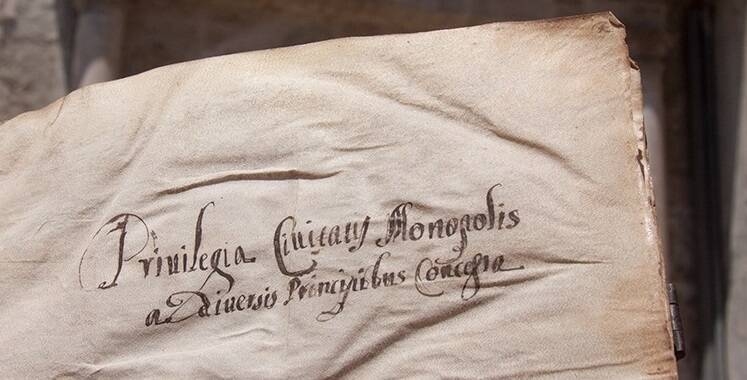 Priuilegia Ciuitatis Monopolis
a Diuersis Principibus Concessa